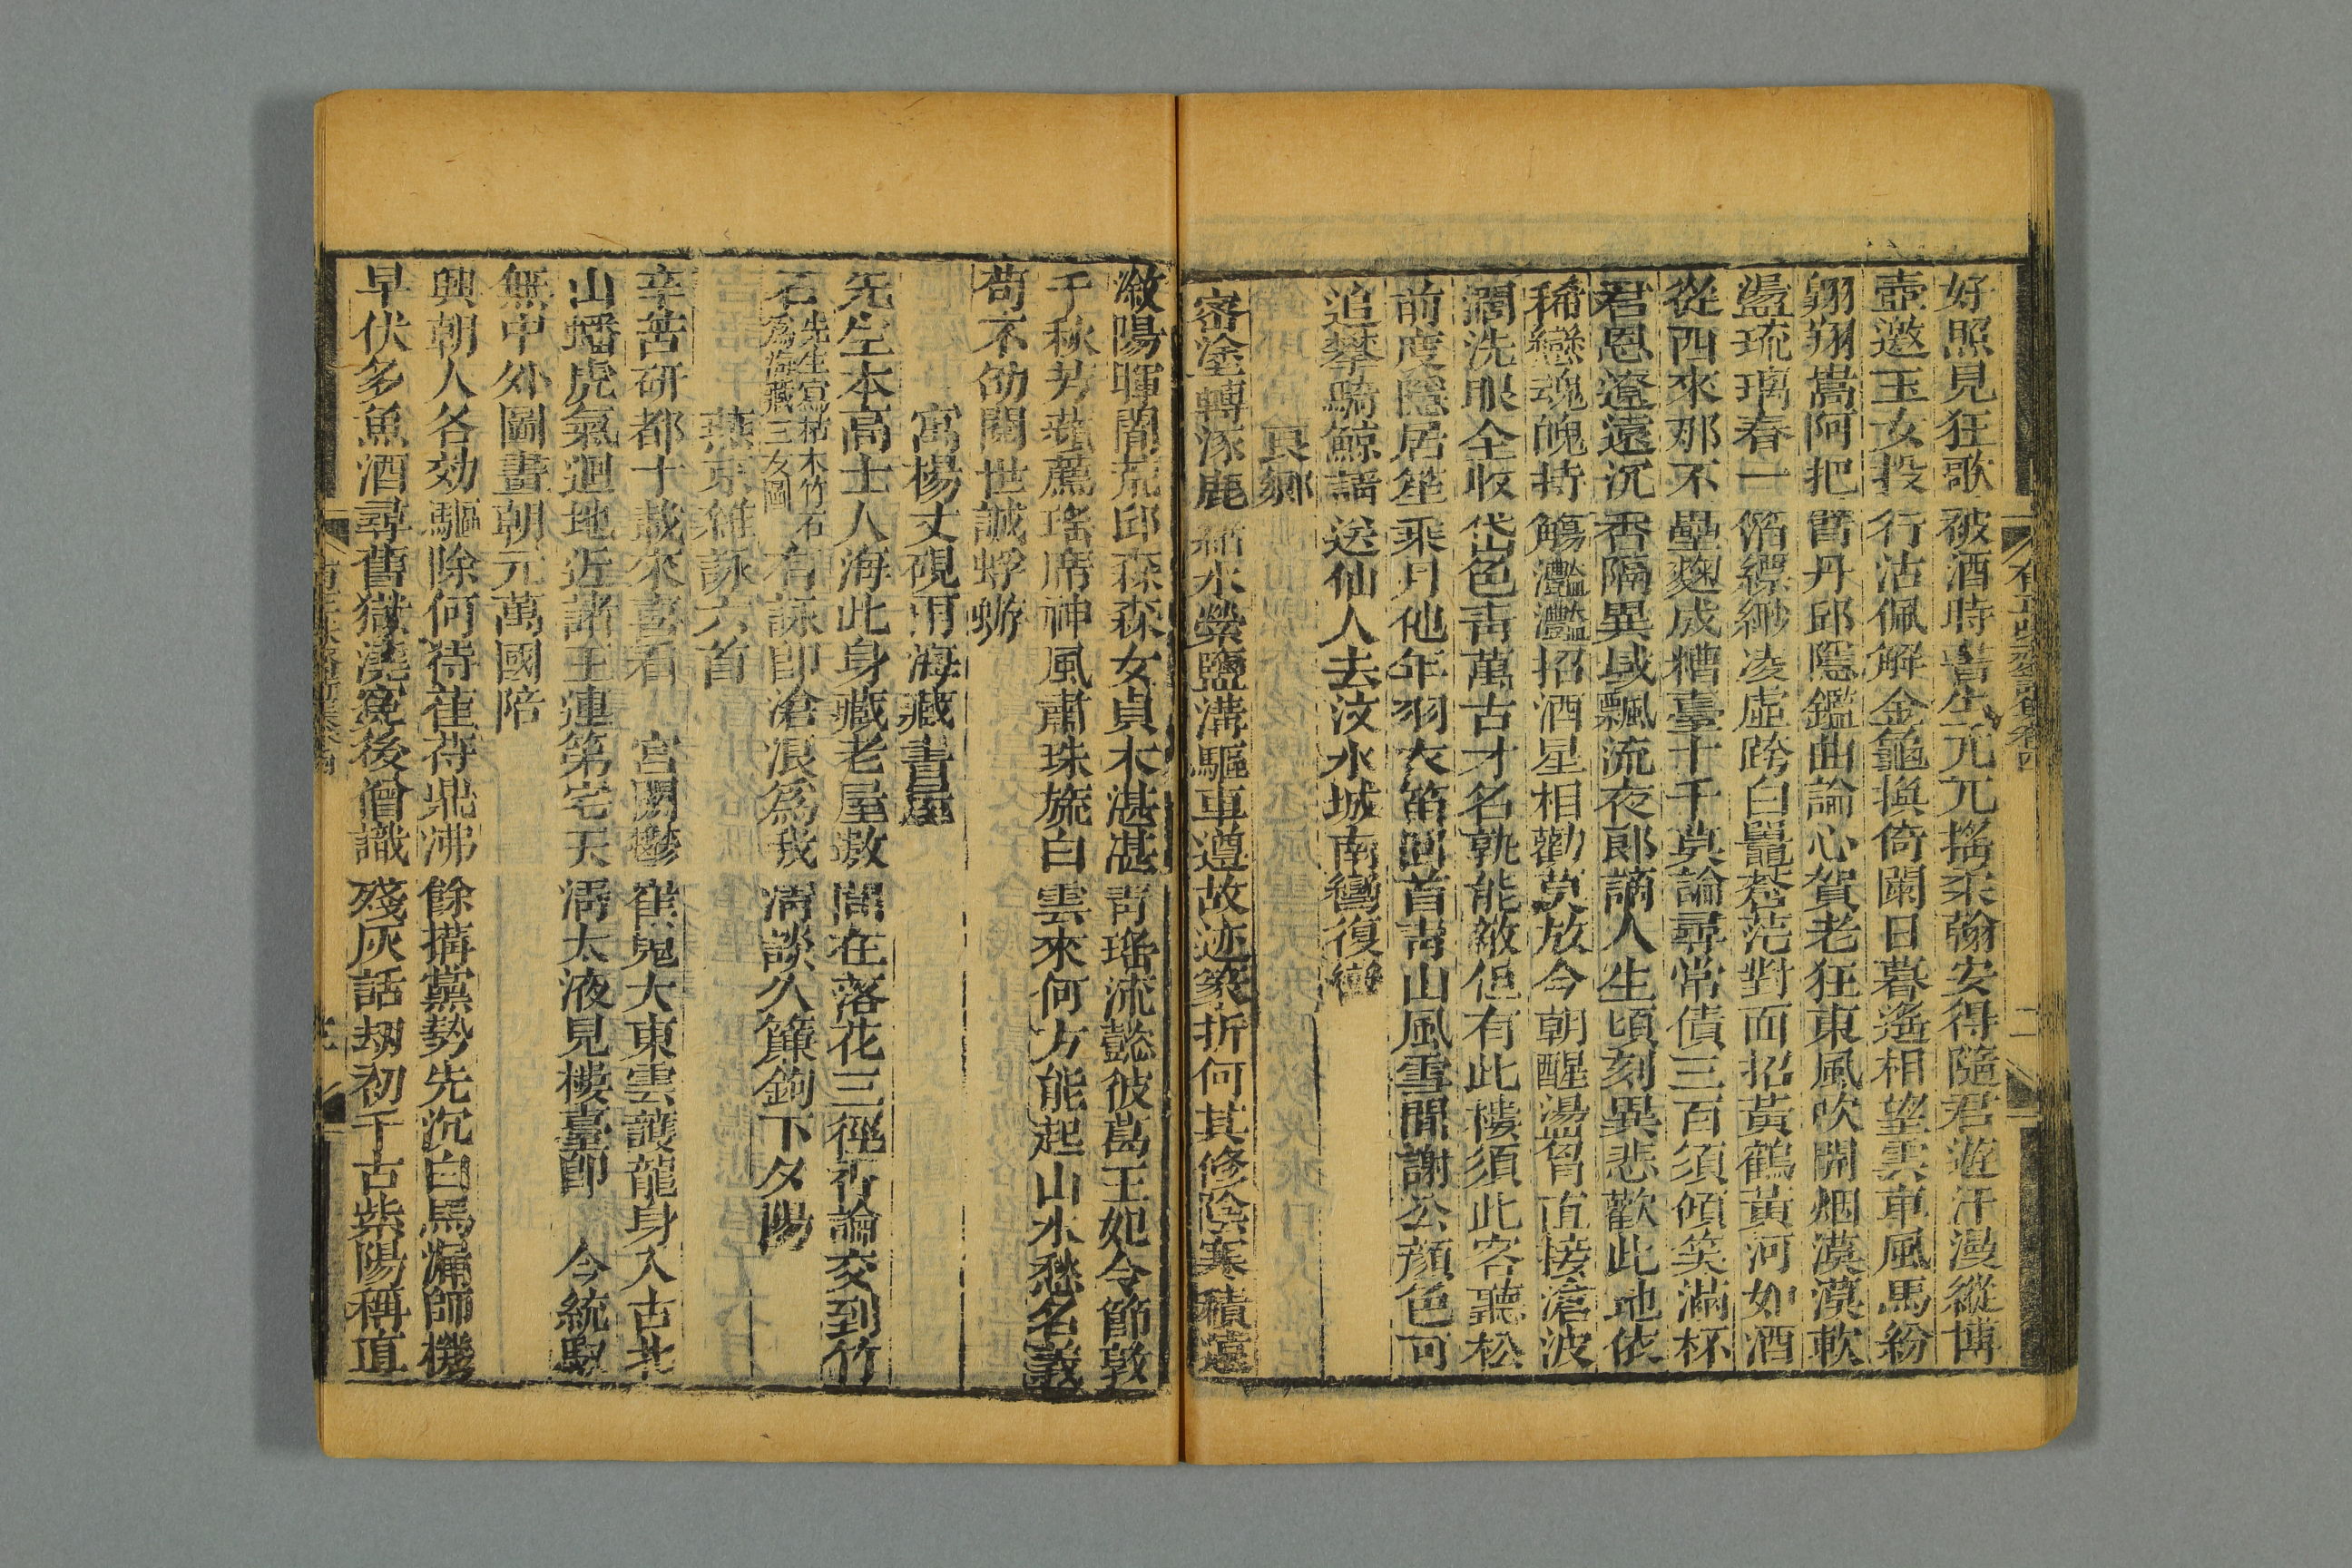 好照見狂歌被酒時書生兀兀搖柔翰安得隨君遊汗漫縱博
壺邀玉女投行沽佩解金龜換倚闌日暮遙相望雲車風馬紛
翱翔嵩阿把臂丹邱隱鑑曲論心賀老狂東風吹開烟漠漠軟
盪琉璃春一縚縹緲凌虛跨白鼉蒼茫對面招黃鶴黃河如酒
從西來那不壘麴成糟臺十千莫論尋常債三百須傾笑滿杯
君恩遼遠沉香隔異域飄流夜郎謫人生頃刻異悲歡此地依
稀戀魂魄持觴灩灩招酒星相勸莫放今朝醒湯胷直接滄波
濶洗眼全收岱色青萬古才名孰能敵但有此樓須此客聽松
前度隱居筵乘月他年羽衣笛囘首青山風雪閒謝公顏色可
追攀騎鯨謡送仙人去汶水城南鸞復
良鄉
密塗轉涿鹿水縈鹽溝驅車遵故迹析何其修陰寒積遠
潋陽暉闇荒邱森森女貞木湛湛青瑤流懿彼葛王妃令節敦
千秋芳蓀薦瑤席神風肅珠旒白雲來何方能起山水愁名義
苟不劭閱世誠蜉蝣
寓楊丈硯甫海藏書屋
先生本高士人海此身藏老屋数間在落花三徑荒論交到竹
石先生寫枯木竹石為海藏三友圖有詠卽滄浪爲我清談久簾鉤下夕陽
燕京雜詠六首
辛苦研都十載來喜看宮闕鬱崔嵬大東雲護龍身入古北
山蟠虎氣迴地近諸王連第宅天清太液見樓臺卽今統馭
無中外圖畫朝元萬國陪
興朝人各効驅除何待萑苻鼎沸餘搆黨勢先沉白馬漏師機
早伏多魚酒尋舊獄澆寃後僧識殘灰話刼初千古紫陽稱直